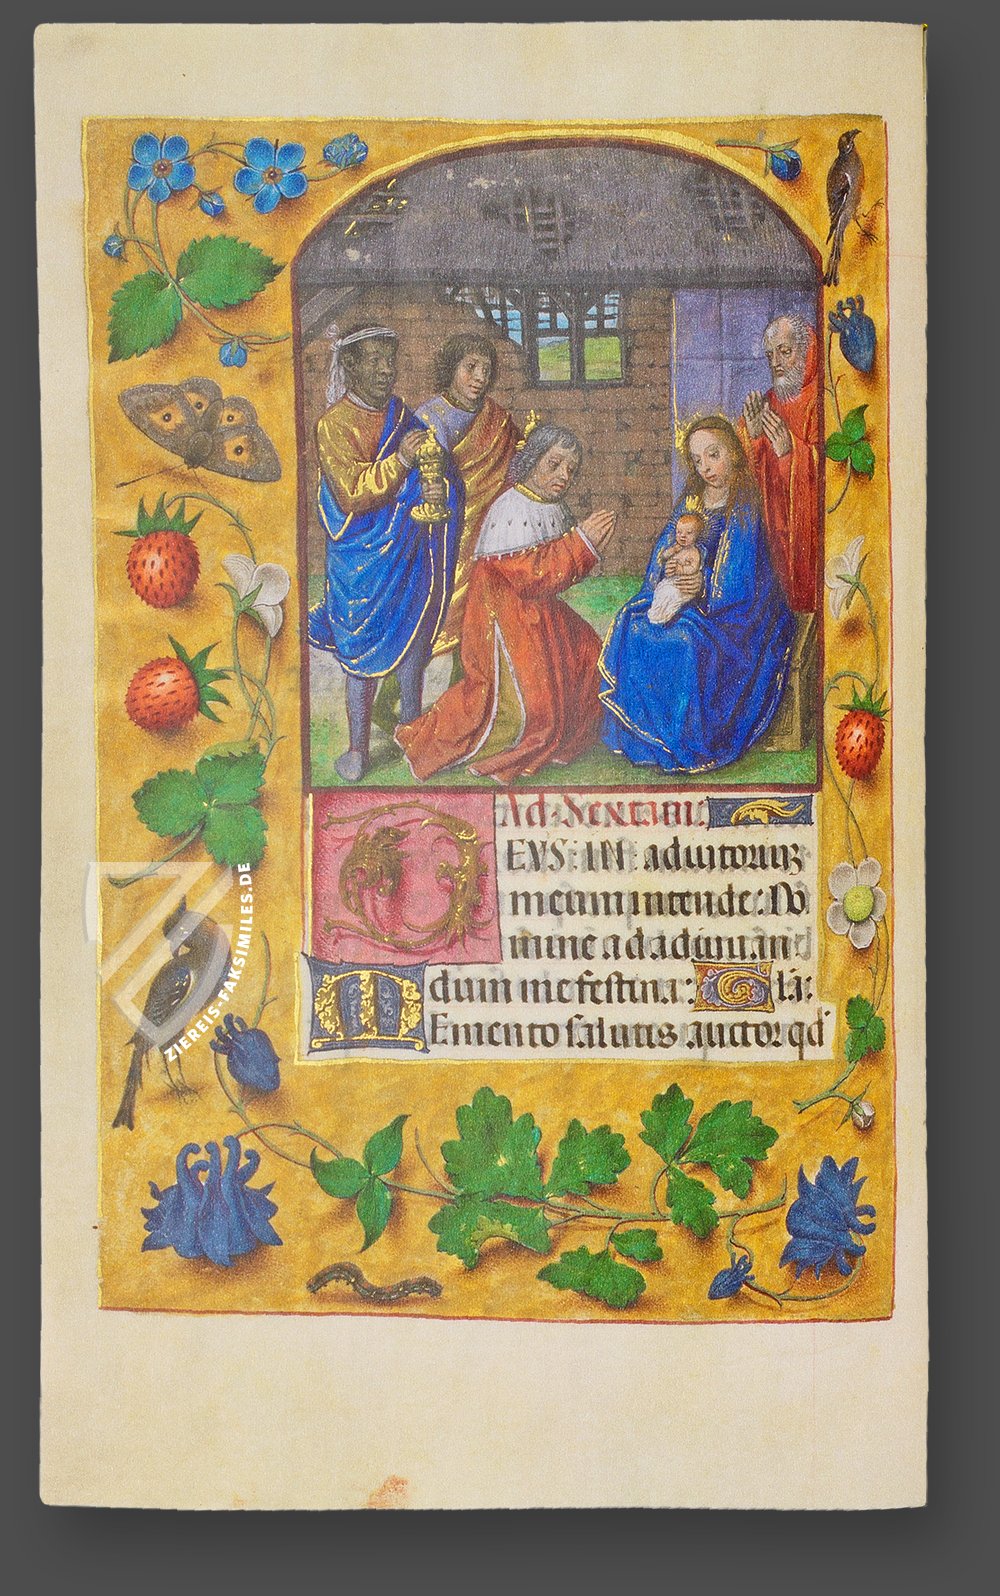 Ad Sextam:
DEVS: IN adiutoriu͂
meum intende: Do
mine ad adiuuan
dum me festina: Gla:
Memento salutis auctor qd
ZIEREIS-FAKSIMILES.DE